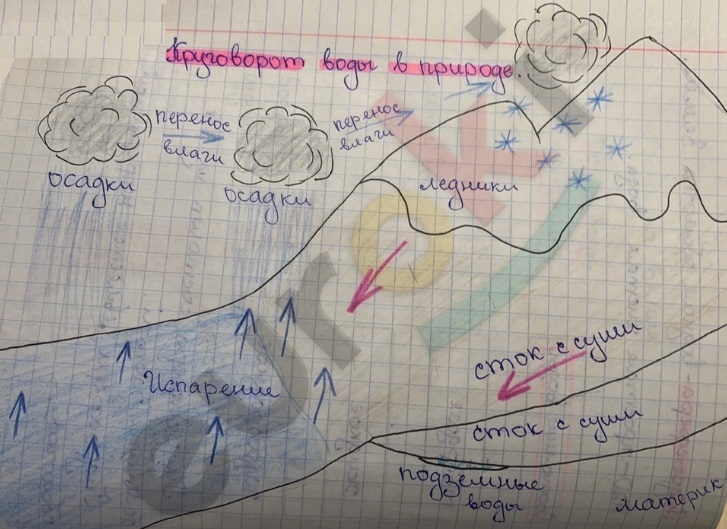 Круговорот воды в природе.
перенос
влаги
перенос
влаги
осадки
осадки
ледники
сток с суши
Испарение
сток с суши
подземные
воды
материк
euroki